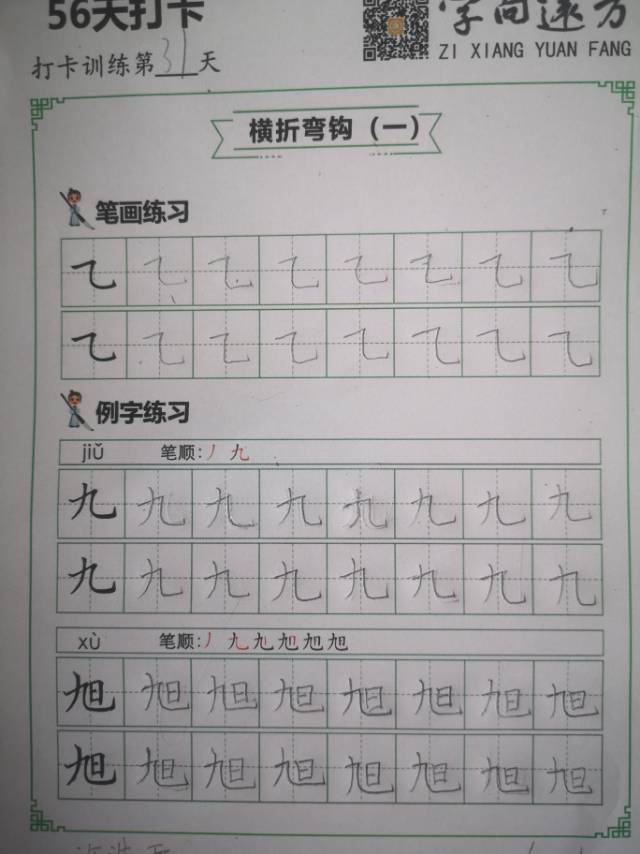 56天打卡
字向远方
ZI XIANG YUAN FANG
打卡训练第31天
横折弯钩（一）
笔画练习
㇈ ㇈ ㇈ ㇈ ㇈ ㇈ ㇈ ㇈
㇈ ㇈ ㇈ ㇈ ㇈ ㇈ ㇈ ㇈
例字练习
jiǔ 笔顺:丿 九
九 九 九 九 九 九 九 九
九 九 九 九 九 九 九 九
xù 笔顺:丿 九
旭 旭 旭 旭 旭 旭 旭 旭
旭 旭 旭 旭 旭 旭 旭 旭